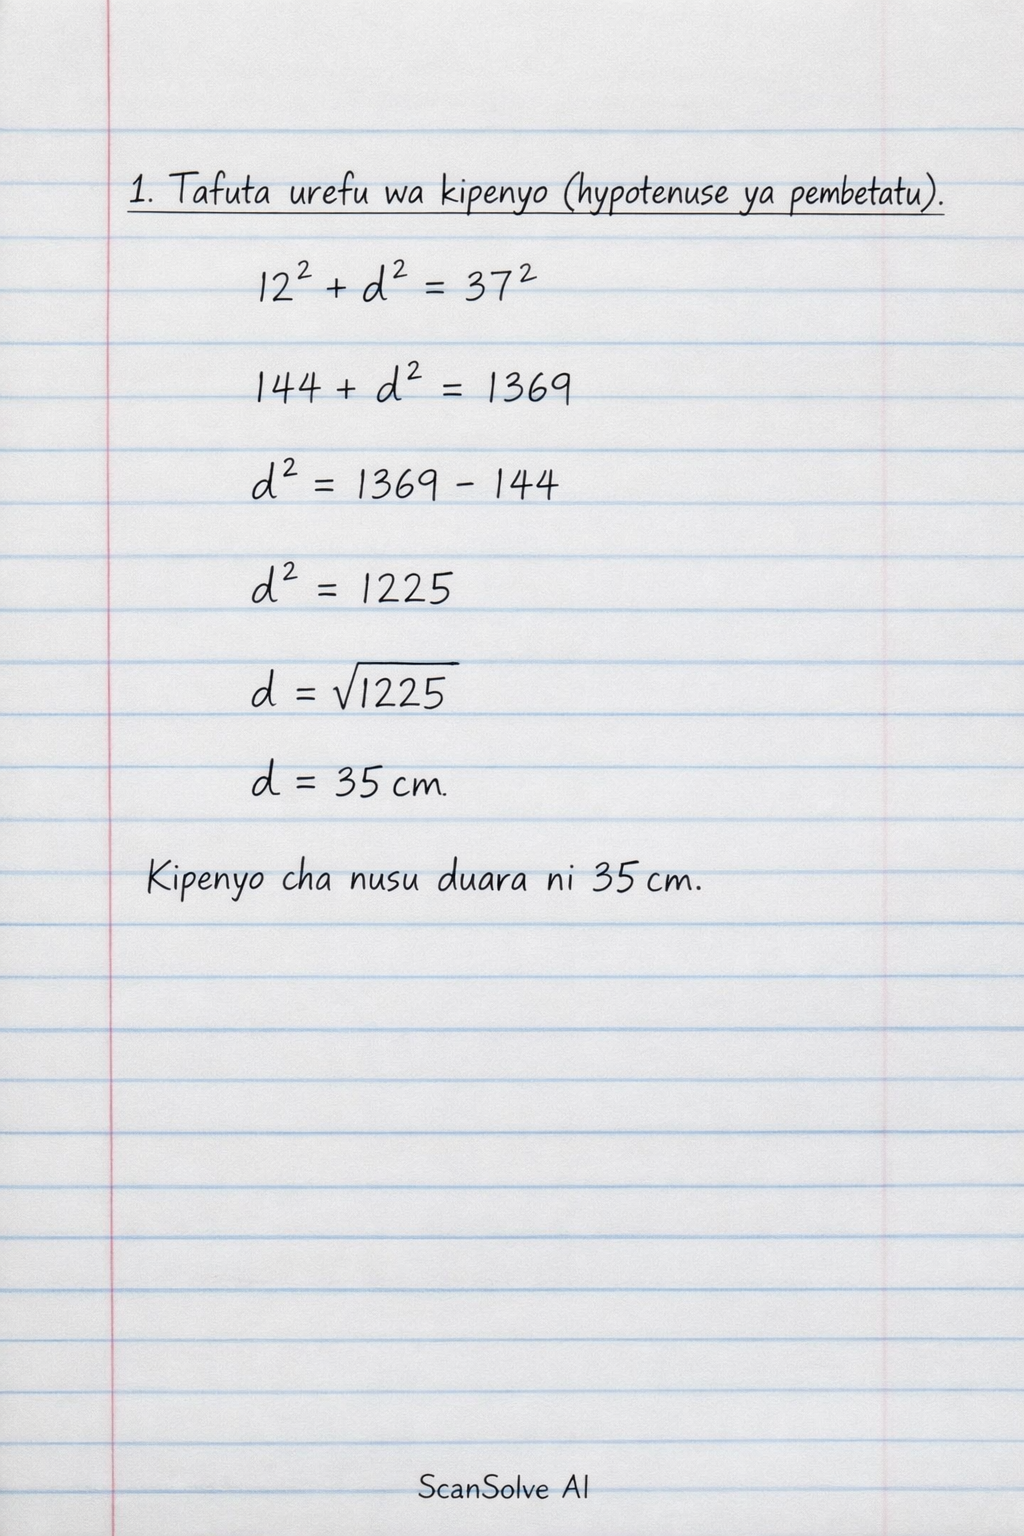 1. Tafuta urefu wa kipenyo (hypotenuse ya pembetatu).
12² + d² = 37²
144 + d² = 1369
d² = 1369 - 144
d² = 1225
d = √1225
d = 35 cm.
Kipenyo cha nusu duara ni 35 cm.
ScanSolve AI